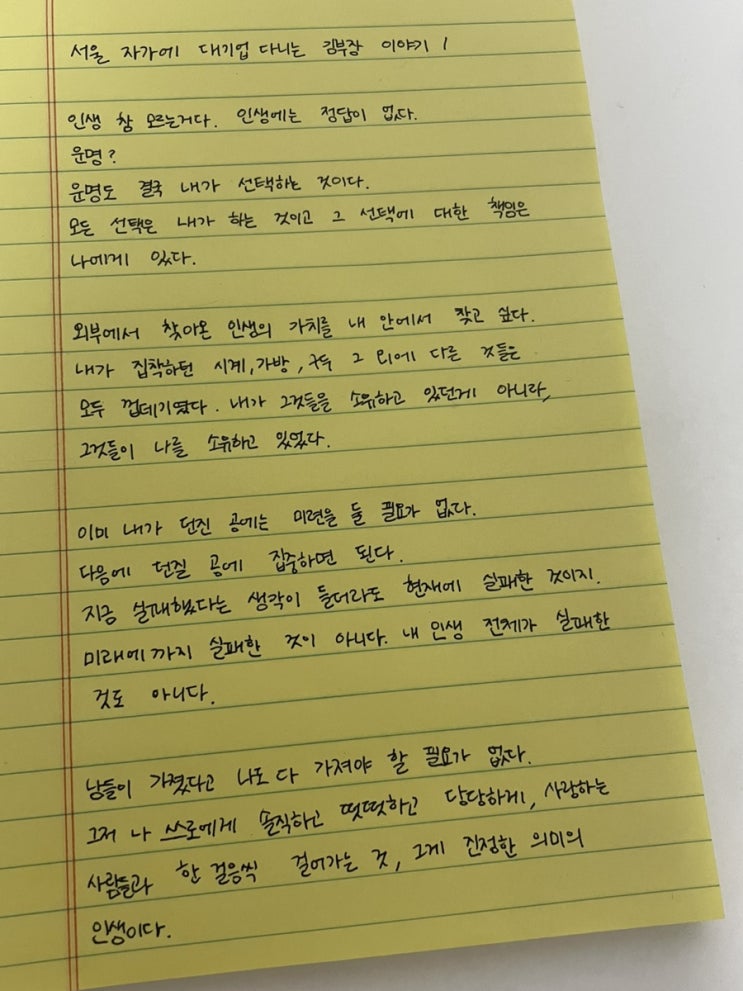 서울 자가에 대기업 다니는 김부장 이야기 1
인생 참 모르는거다. 인생에는 정답이 없다.
운명?
운명도 결국 내가 선택하는 것이다.
모든 선택은 내가 하는 것이고 그 선택에 대한 책임은
나에게 있다.
외부에서 찾아온 인생의 가치를 내 안에서 찾고 싶다.
내가 집착하던 시계, 가방, 구두 그 외에 다른 것들은
모두 껍데기였다. 내가 그것들을 소유하고 있던게 아니라,
그것들이 나를 소유하고 있었다.
이미 내가 던진 공에는 미련을 둘 필요가 없다.
다음에 던질 공에 집중하면 된다.
지금 실패했다는 생각이 들더라도 현재에 실패한 것이지.
미래에까지 실패한 것이 아니다. 내 인생 전체가 실패한
것도 아니다.
남들이 가졌다고 나도 다 가져야 할 필요가 없다.
그저 나 쓰로에게 솔직하고 떳떳하고 당당하게, 사랑하는
사람들과 한 걸음씩 걸어가는 것, 그게 진정한 의미의
인생이다.